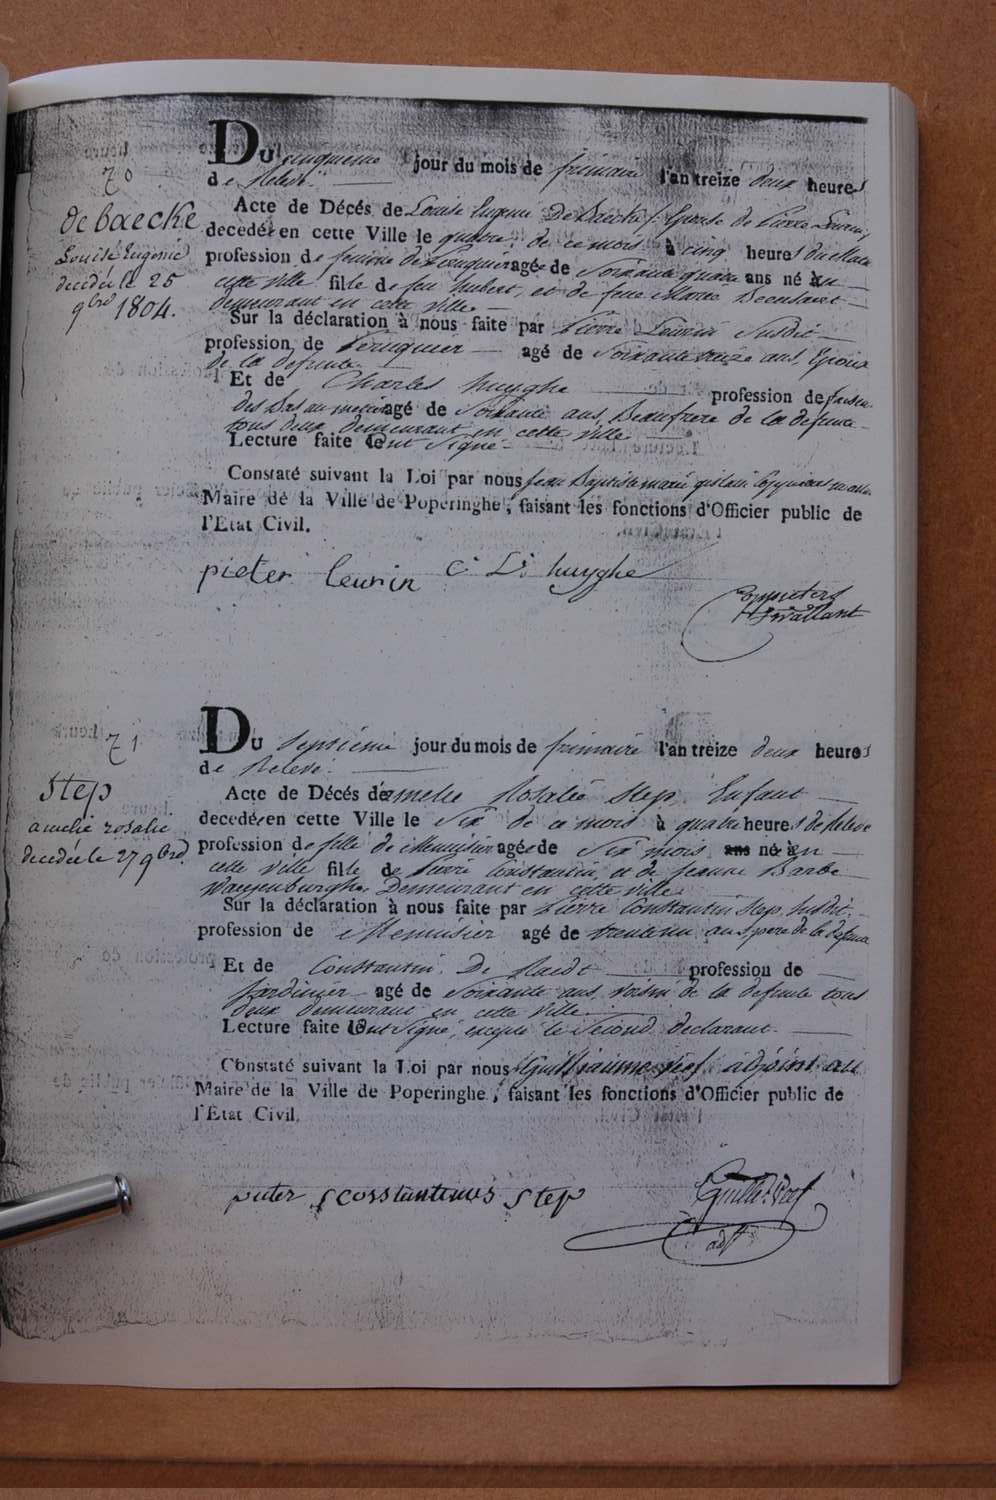 70
de baecke
Louise Eugenie
decedé le 25
9bre 1804.
Du cinquieme jour du mois de frimaire l'an treize deux heures
de Relevé.
Acte de Décés de Louise Eugenie De Baecke Epouse de Pierre Leurin
decedée en cette Ville le quatre de ce mois à cinq heures du Matin
profession de femme de Perruquier agée de Soixante quatre ans né en
cette ville fille de feu hubert, et de feue Marie
demeurant en cette ville
Sur la déclaration à nous faite par Pierre Leurin Susdit
profession de Peruquier agé de Soixante treize ans Epoux
de la defunte
Et de Charles huyghe profession de faiseur
des Bas au metier agé de Soixante ans Beaufrere de la defunte
tous deux demeurant en cette ville
Lecture faite ont Signé
Constaté suivant la Loi par nous Jean Baptiste
Maire de la Ville de Poperinghe, faisant les fonctions d'Officier public de
l'Etat Civil.
pieter leurin C: L: huyghe
71
Step
amelie rosalie
decedée le 27 9bre
Du Septieme jour du mois de frimaire l'an treize deux heures
de Relevé.
Acte de Décés de amelie Rosalie Step Enfant
decedée en cette Ville le Six de ce mois à quatre heures de Relevé
profession de fille de Menuisier agée de Six mois ans né à en
cette ville fille de Pierre Constantin, et de Jeanne Barbe
Demeurant en cette ville
Sur la déclaration à nous faite par Pierre Constantin Step Susdit
profession de Menuisier agé de trente un ans pere de la defunte
Et de Constantin De Raedt profession de
Jardinier agé de Soixante ans voisin de la defunte tous
deux demeurant en cette ville
Lecture faite ont Signé, excepté le Second declarant.
Constaté suivant la Loi par nous Guilliaume adjoint au
Maire de la Ville de Poperinghe, faisant les fonctions d'Officier public de
l'Etat Civil.
pieter constantinus Step
adjt